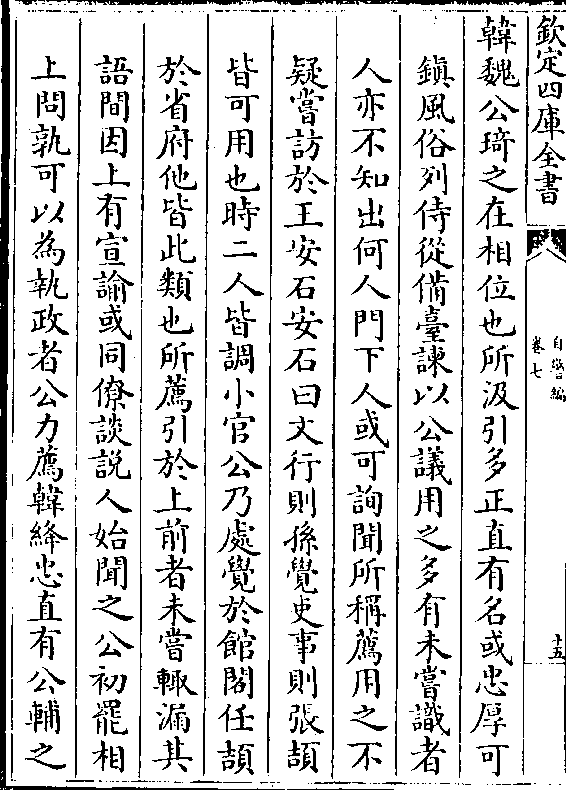 欽定四庫全書
自警編
卷七
十五
韓魏公琦之在相位也所汲引多正直有名或忠厚可
鎮風俗列侍從備臺諫以公議用之多有未嘗識者
人亦不知出何人門下人或可詢聞所稱薦用之不
疑嘗訪於王安石安石曰文行則孫覺吏事則張頡
皆可用也時二人皆調小官公乃處覺於館閣任頡
於省府他皆此類也所薦引於上前者未嘗輙漏其
語間因上有宣諭或同僚談説人始聞之公初罷相
上問孰可以為執政者公力薦韓絳忠直有公輔之